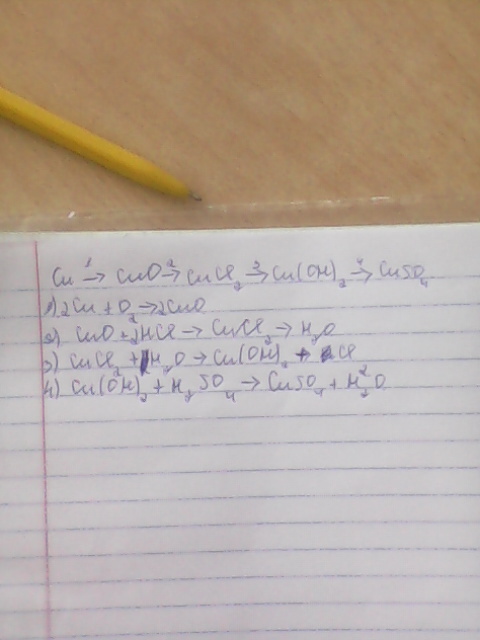 Cu 1→ CuO 2→ CuCl2 3→ Cu(OH)2 4→ CuSO4
1) 2Cu + O2 → 2CuO
2) CuO + 2HCl → CuCl2 → H2O
3) CuCl2 + H2O → Cu(OH)2 + Cl
4) Cu(OH)2 + H2SO4 → CuSO4 + H2O